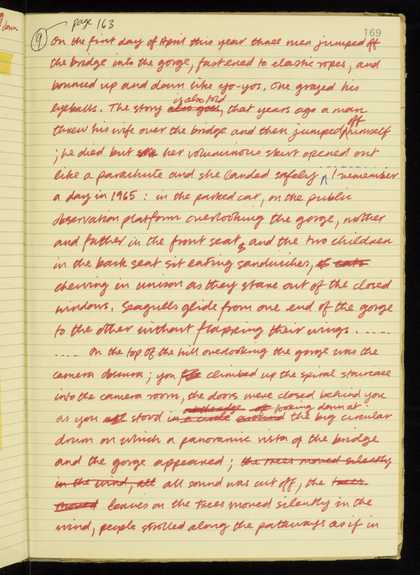 page 163
169
9 On the first day of April this year three men jumped off
the bridge into the gorge, fastened to elastic ropes, and
bounced up and down like yo-yos. One grazed his
eyeballs. The story also goes is also told, that years ago a man
threw his wife over the bridge and then jumped off himself
; he died but her voluminous skirt opened out
like a parachute and she landed safely. I remember
a day in 1965: in the parked car, on the public
observation platform overlooking the gorge, mother
and father in the front seat, and the two children
in the back seat sit eating sandwiches,
chewing in unison as they stare out of the closed
windows. Seagulls glide from one end of the gorge
to the other without flapping their wings. .....
..... On the top of the hill overlooking the gorge was the
camera obscura; you climbed up the spiral staircase
into the camera room, the doors were closed behind you
as you stood in a circle around looking down at the big circular
drum on which a panoramic vista of the bridge
and the gorge appeared; the trees moved silently
in the wind, all all sound was cut off, the trees
moved leaves on the trees moved silently in the
wind, people strolled along the pathways as if in